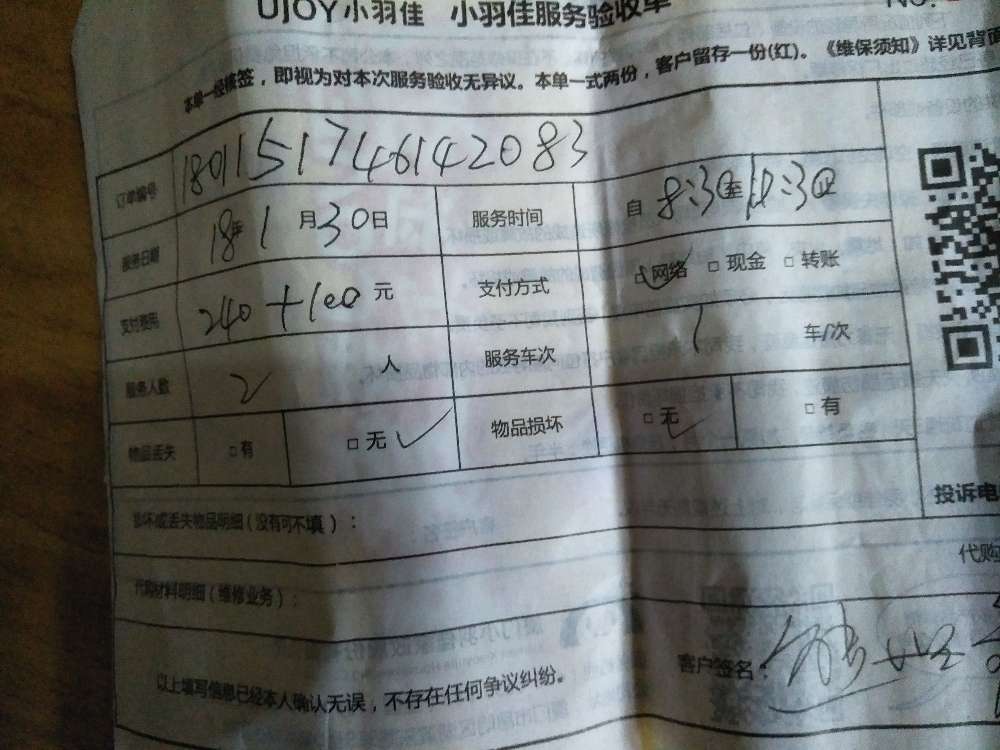 UJOY小羽佳 小羽佳服务验收单
NO.
本单一经核签，即视为对本次服务验收无异议。本单一式两份，客户留存一份(红)。《维保须知》详见背面
订单编号 180115174614 2083
服务日期 18年1月30日 服务时间 自8:30至12:30止
支付费用 240+100元 支付方式 □网络 □现金 □转账
服务人数 2人 服务车次 1 车/次
物品丢失 □有 □无 物品损坏 □无 □有
投诉电
损坏或丢失物品明细(没有可不填)：
代购
代购材料明细(维修业务)：
以上填写信息已经本人确认无误，不存在任何争议纠纷。
客户签名：